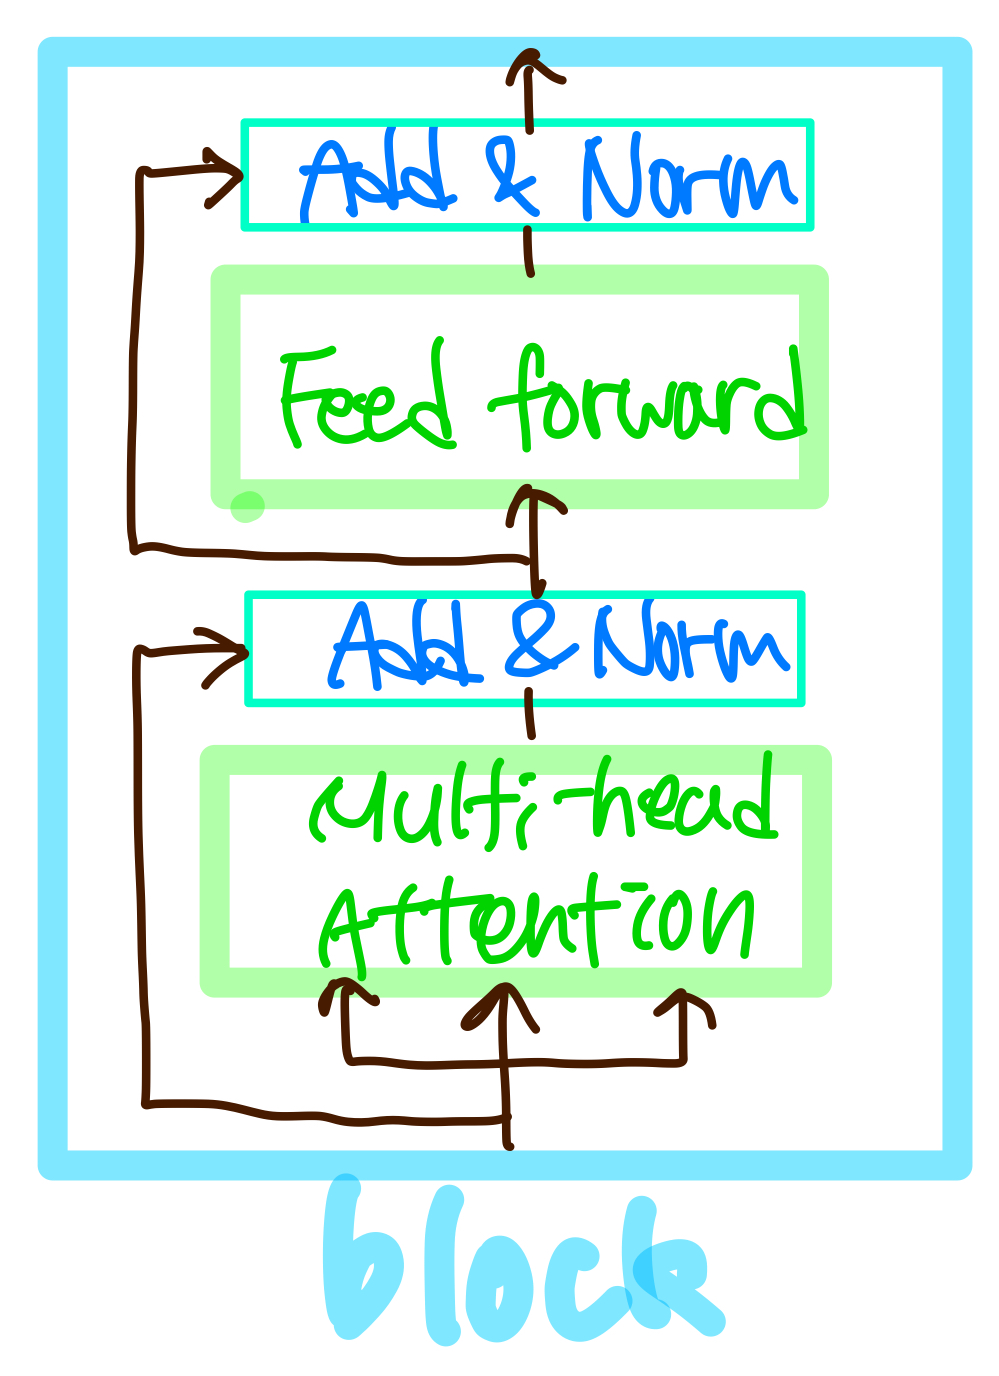 Add & Norm
Feed forward
Add & Norm
Multi-head
Attention
block